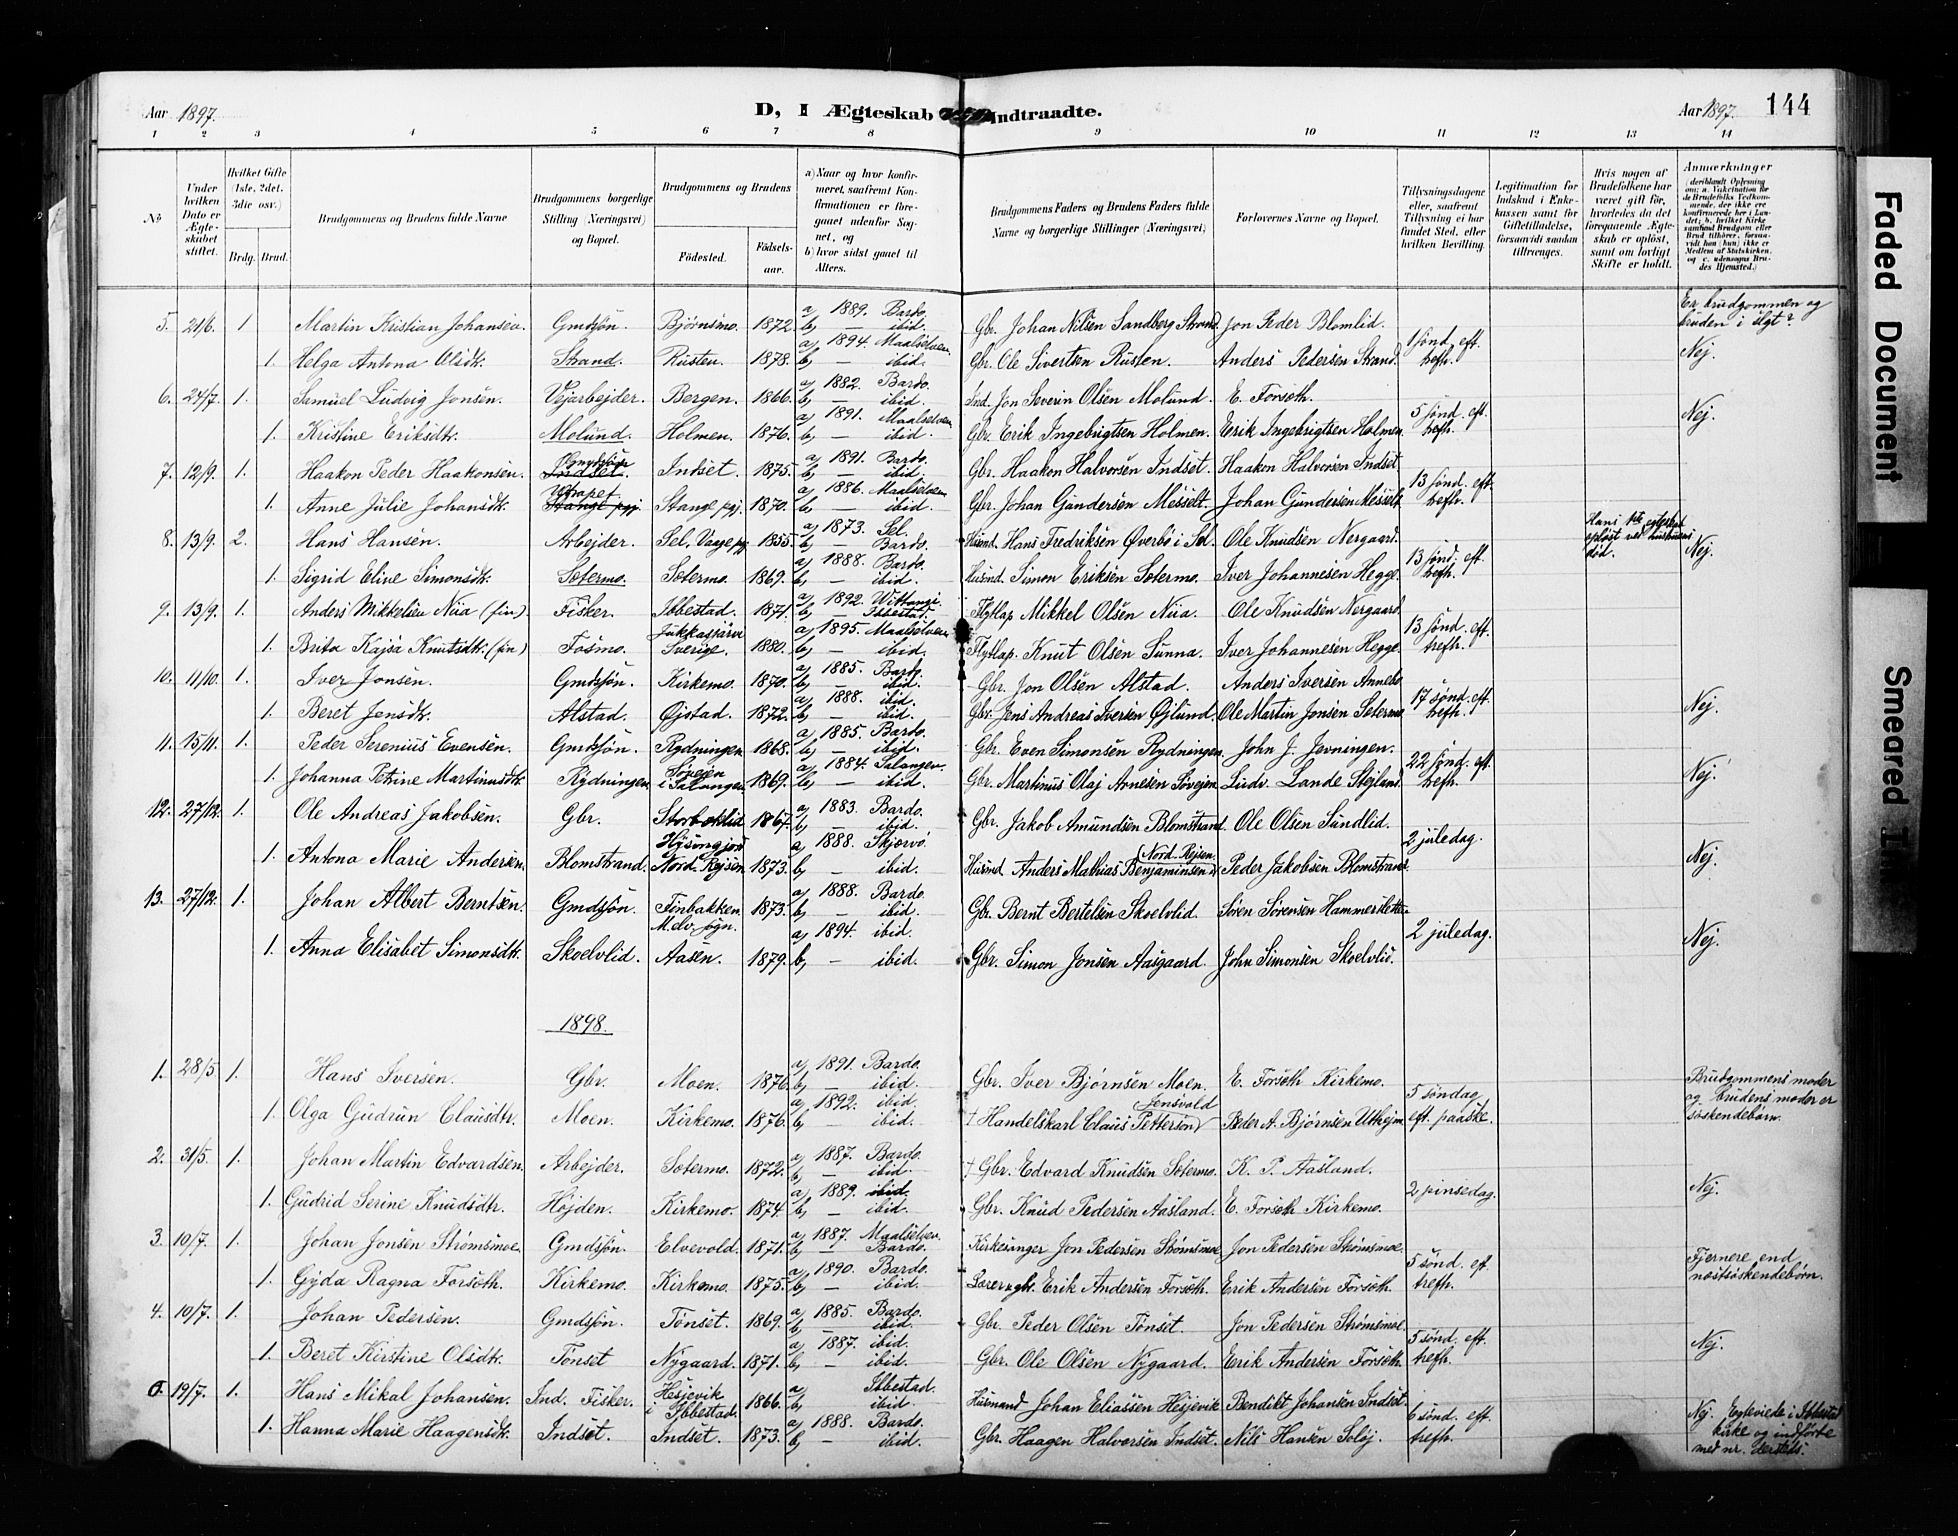 Aar 1897. D, I Ægteskab Indtraadte. Aar 1897. 144
1 2 3 4 5 6 7 8 9 10 11 12 13 14
No
Under hvilken Dato er Ægteskabet stiftet.
Hvilket Gifte (1ste, 2det, 3die osv.)
Brdg. Brud.
Brudgommens og Brudens fulde Navne
Brudgommens borgerlige Stilling (Næringsvei) og Bopæl.
Brudgommens og Brudens
Fødested. Fødselsaar.
a) Naar og hvor konfirmeret, saafremt Konfirmationen er foregaaet udenfor Sognet, og
b) hvor sidst gaaet til Alters.
Brudgommens Faders og Brudens Faders fulde Navne og borgerlige Stillinger (Næringsvei)
Forlovernes Navne og Bopæl.
Tillysningsdagene eller, saafremt Tillysning ei har fundet Sted, efter hvilken Bevilling.
Legitimation for Indskud i Enkekassen samt for Giftetilladelse, forsaavidt saadan tiltrænges.
Hvis nogen af Brudefolkene har været gift før, hvorledes da det foregaaende Ægteskab er opløst, samt om lovligt Skifte er holdt.
Anmærkninger (deriblandt Oplysning om: a. Vakcination for de Brudefolks Vedkommende, der ikke ere konfirmerede her i Landet; b. hvilket Kirkesamfund Brudgom eller Brud tilhører, forsaavidt han (hun) ikke er Medlem af Statskirken, og c. udensogns Brudes Hjemsted.)
5. 21/6. 1 Martin Kristian Johansen. Gmdsjøn. Bjørnsmo. 1872. a) 1889. Bardo. b) — ibid. Gbr. Johan Nilsen Sandberg Strand. Jon Peder Blomlid. Er brudgommen og bruden i slgt?
1. Helga Antona Olsdtr. Strand. Rusten. 1878. a) 1894. Maalselven. b) — ibid. Gbr. Ole Sivertsen Rusten. Anders Pedersen Strand. 1 sønd. eft. trefh. Nej.
6. 24/7. 1. Samuel Ludvig Jonsen. Vejarbejder. Bergen. 1866. a) 1882. Bardo. b) — ibid. Ind. Jon Severin Olsen Molund. E. Forseth.
1. Kristine Eriksdtr. Molund. Holmen. 1876. a) 1891. Maalselven. b) — ibid. Gbr. Erik Ingebrigtsen Holmen. Erik Ingebrigtsen Holmen. 5 sønd. eft. trefh. Nej.
7. 12/9. 1. Haakon Peder Haakonsen. Gmdsjøn Indset. Indset. 1875. a) 1891. Bardo. b) — ibid. Gbr. Haakon Halvorsen Indset. Haakon Halvorsen Indset.
1. Anne Julie Johansdtr. Stange pgj. Stange pgj. 1870. a) 1886. Maalselven. b) — ibid. Gbr. Johan Gundersen Messelt. Johan Gundersen Messelt. 13 sønd. eft. trefh.
8. 13/9. 2. Hans Hansen. Arbejder. Sel, Vaage pgj. 1855. a) 1873. Sel. b) Bardo. Husmd. Hans Fredriksen Øverbø i Sel. Ole Knudsen Nergaard. Hans 1ste egteskab opløst ved hustruens død. Nej.
1. Sigrid Eline Simonsdtr. Sætermo. Sætermo. 1869. a) 1888. Bardo. b) — ibid. Husmd. Simon Eriksen Sætermo. Iver Johannesen Hegge. 13 sønd. eft. trefh.
9. 13/9. 1. Anders Mikkelsen Niia (fin) Fisker. Ibbestad. 1871. a) 1892. Wittangi. b) Ibbestad. Flytlap Mikkel Olsen Niia. Ole Knudsen Nergaard.
1. Brita Kajsa Knutsdtr. (fin) Fosmo. Jukkasjärvi Sverige. 1880. a) 1895. Maalselven. b) — ibid. Flytlap. Knut Olsen Sunna. Iver Johannesen Hegge. 13 sønd. eft. trefh.
10. 11/10. 1. Iver Jonsen. Gmdsjøn. Kirkemo. 1870. a) 1885. Bardo. b) — ibid. Gbr. Jon Olsen Alstad. Anders Iversen Annebo
1. Beret Jensdtr. Alstad. Øjstad. 1872. a) 1888. ibid. b) — ibid. Gbr. Jens Andreas Iversen Øjlund. Ole Martin Jonsen Sætermo. 17 sønd. eft. trefh. Nej.
11. 15/11. 1. Peder Serenius Evensen. Gmdsjøn. Rydningen. 1868. a) 1885. Bardo. b) — ibid. Gbr. Even Simonsen Rydningen. John J. Jevningen.
1. Johanna Petrine Martinusdtr. Rydningen. Søvejen i Salangen. 1869. a) 1884. Salangen. b) — ibid. Gbr. Martinus Olaj Arnesen Søvejen. Ludv. Lande Stejland. 22 sønd. eft. trefh. Nej.
12. 27/12. 1. Ole Andreas Jakobsen. Gbr. Storbæklid 1867. a) 1883. Bardo. b) — ibid. Gbr. Jakob Amundsen Blomstrand. Ole Olsen Sundlid.
1. Antona Marie Andersen. Blomstrand. Hysingjord Nord-Rejsen. 1873. a) 1888. Skjærvø. b) — ibid. Husmd. Anders Mathias Benjaminsen (Nord-Rejsen. Peder Jakobsen Blomstrand. 2 juledag. Nej.
13. 27/12. 1. Johan Albert Berntsen. Gmdsjøn. Finbakken. M.elv. sogn. 1873. a) 1888. Bardo. b) — ibid. Gbr. Bernt Bertelsen Skoelvlid. Søren Sørensen Hammerslette.
1. Anna Elisabet Simonsdtr. Skoelvlid. Aasen. 1879. a) 1894. ibid. b) — ibid. Gbr. Simon Jonsen Aasgaard. John Simonsen Skoelvlid. 2 juledag. Nej.
1898.
1. 28/5. 1. Hans Iversen. Gbr. Moen. 1876. a) 1891. Bardo. b) — ibid. Gbr. Iver Bjørnsen Moen. E. Forseth Kirkemo. Brudgommens moder og brudens moder er søskendebørn.
1. Olga Gudrun Clausdtr. Moen. Kirkemo. 1876. a) 1892. ibid. b) — ibid. † Handelskarl Claus Petterson Jensvold Peder A. Bjørnsen Utheim. 5 søndag eft. paaske.
2. 31/5. 1. Johan Martin Edvardsen. Arbejder. Sætermo. 1872. a) 1887. Bardo. b) — ibid. † Gbr. Edvard Knudsen Sætermo. K. P. Aasland.
1. Gudrid Serine Knudsdtr. Højden. Kirkemo. 1874. a) 1889. ibid. b) — ibid. Gbr. Knud Pedersen Aasland. E. Forseth Kirkemo. 2 pinsedag. Nej.
3. 10/7. 1. Johan Jonsen Strømsmoe. Gmdsjøn. Elvevold. 1871. a) 1887. Maalselven. b) — Bardo. Kirkesanger Jon Pedersen Strømsmoe. Jon Pedersen Strømsmoe.
1. Gyda Ragna Forseth. Kirkemo. Kirkemo. 1875. a) 1890. Bardo. b) — ibid. Lærer ogbr. Erik Andersen Forseth. Erik Andersen Forseth. 5 sønd. eft. trefh. Fjernere end næstsøskendebørn.
4. 10/7. 1. Johan Pedersen. Gmdsjøn. Tønset. 1869. a) 1885. Bardo. b) — ibid. Gbr. Peder Olsen Tønset. Jon Pedersen Strømsmoe.
1. Beret Kirstine Olsdtr. Tønset Nygaard. 1871. a) 1887. ibid. b) — ibid. Gbr. Ole Olsen Nygaard. Erik Andersen Forseth. 5 sønd. eft. trefh. Nej.
19/7. 1. Hans Mikal Johansen. Ind. Fisker. Hesjevik i Ibbestad. 1866. a) Ibbestad. b) ibid. Husmand Johan Eliassen Hesjevik. Bendikt Johansen Indset.
1. Hanna Marie Haagensdtr. Indset. Indset. 1873. a) 1888. Bardo. b) — ibid. Gbr. Haagen Halvorsen Indset. Nils Hansen Soløj. 6 sønd. eft. trefh. Nej. Egteviede i Ibbestad kirke og indførte med nr. dersteds.
Faded Document
Smeared